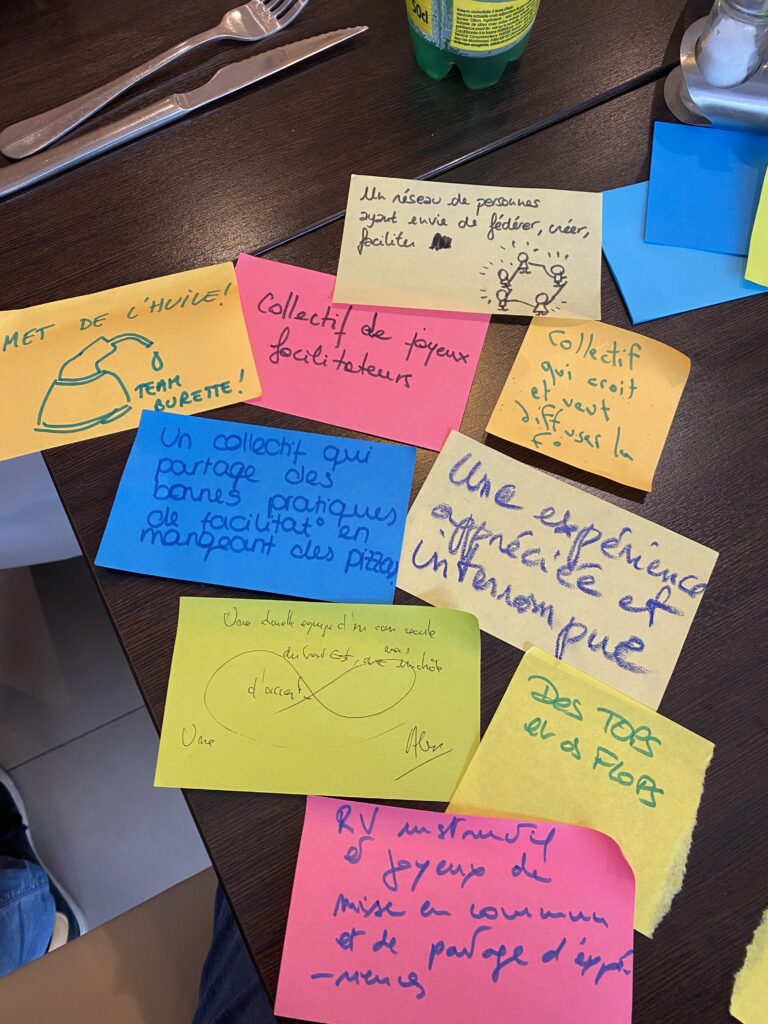 50cl
Un réseau de personnes
ayant envie de fédérer, créer,
faciliter
MET DE L'HUILE!
TEAM
BURETTE!
Collectif de joyeux
facilitateurs
Collectif
qui croit
et veut
diffuser la
Un collectif qui
partage des
bonnes pratiques
de facilitat° en
mangeant des pizzas
Une expérience
appréciée et
interrompue
Une équipe d'un
d'accent
Une
Des TOPS
et ds FLOPS
RV instructif
et joyeux de
misse en commun
et de partage d'expé
-riences